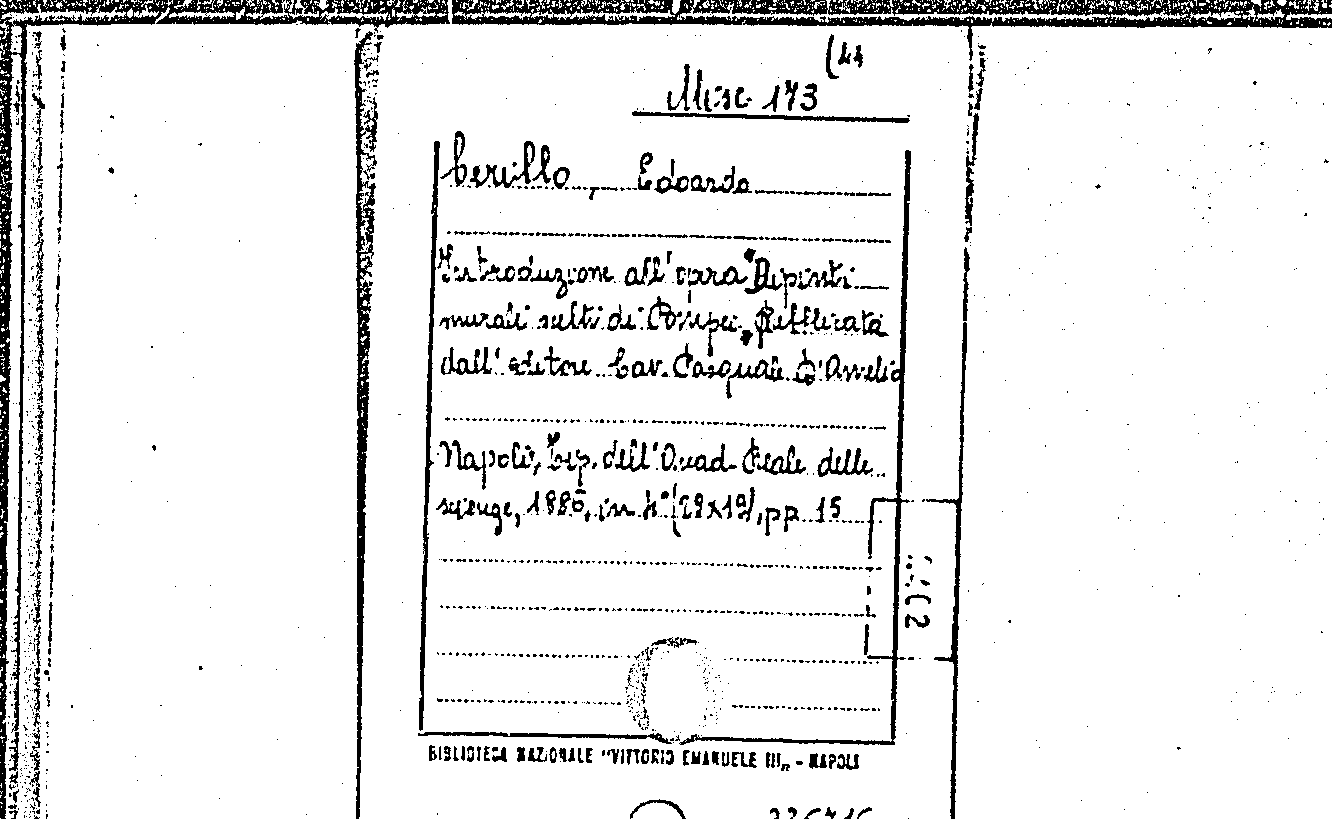 (44
Misc. 173
Cerillo, Edoardo
Introduzione all'opera "Dipinti
murali scelti di Pompei"
dall'editore Cav. Pasquale D'Amelio
Napoli, Tip. dell'Accad. Reale delle
scienze, 1886, in 4° (28x19), pp. 15
BIBLIOTECA NAZIONALE "VITTORIO EMANUELE III„ - NAPOLI